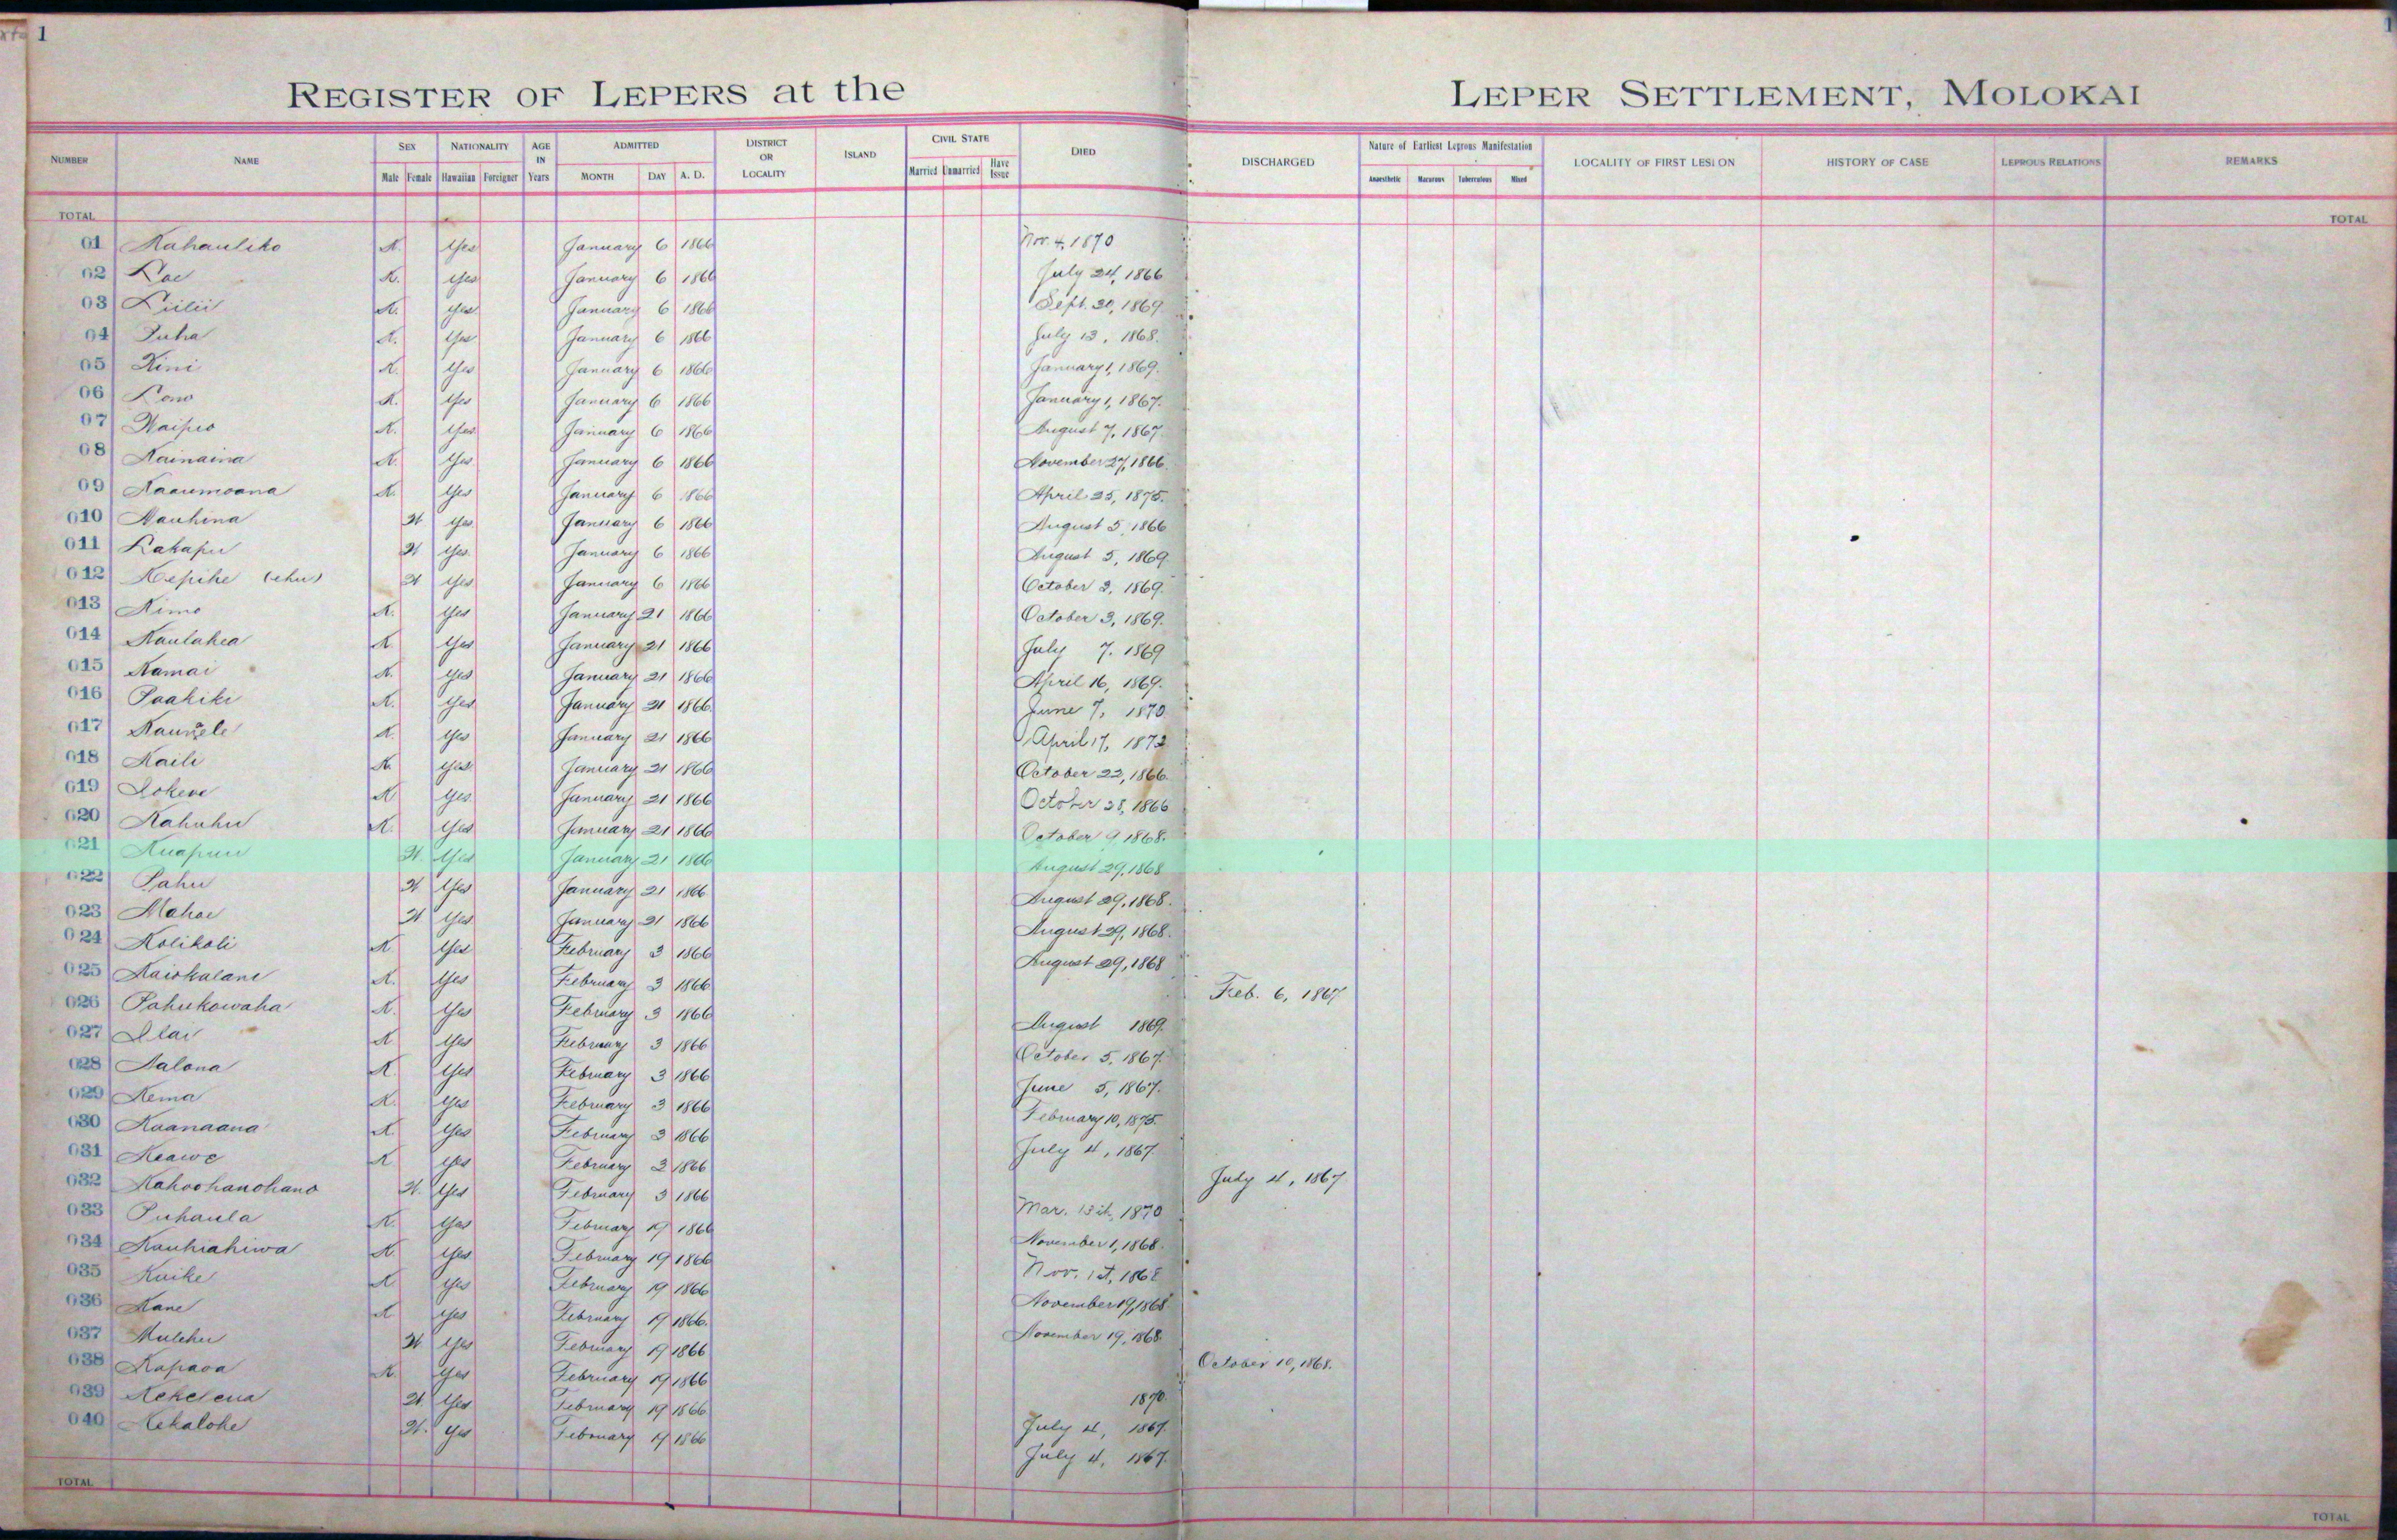 1
REGISTER OF LEPERS at the LEPER SETTLEMENT, MOLOKAI
NUMBER NAME SEX NATIONALITY AGE IN Years ADMITTED DISTRICT OR LOCALITY ISLAND CIVIL STATE DIED DISCHARGED Nature of Earliest Leprous Manifestation LOCALITY OF FIRST LESION HISTORY OF CASE LEPROUS RELATIONS REMARKS
Male Female Hawaiian Foreigner MONTH DAY A. D. Married Unmarried Have Issue Anaesthetic Macurous Tuberculous Mixed
TOTAL TOTAL
01 Kahauliko K. Yes January 6 1866 Nov. 4, 1870
02 Lae K. Yes January 6 1866 July 24, 1866
03 Liilii K. Yes January 6 1866 Sept. 30, 1869
04 Puha K. Yes January 6 1866 July 13, 1868.
05 Kini K. Yes January 6 1866 January 1, 1869.
06 Lono K. Yes January 6 1866 January 1, 1867.
07 Waipio K. Yes January 6 1866 August 7, 1867.
08 Kainaina K. Yes January 6 1866 November 27, 1866.
09 Kaaumoana K. Yes January 6 1866 April 25, 1875.
010 Nauhina W Yes January 6 1866 August 5, 1866
011 Lakapu W Yes January 6 1866 August 5, 1869.
012 Kepihe (ehu) W Yes January 6 1866 October 3, 1869.
013 Kimo K. Yes January 21 1866 October 3, 1869.
014 Kaulahea K. Yes January 21 1866 July 7. 1869
015 Kamai K. Yes January 21 1866 April 16, 1869.
016 Paakiki K. Yes January 21 1866 June 7, 1870
017 K. Yes January 21 1866 April 17, 1873
018 Kaili K Yes January 21 1866 October 23, 1866.
019 Lokene K Yes January 21 1866 October 28, 1866
020 Kahuhu K. Yes January 21 1866 October 9, 1868.
021 Kuapuu W. Yes January 21 1866 August 29, 1868
022 Pahu W Yes January 21 1866 August 29, 1868.
023 Mahoe W Yes January 21 1866 August 29, 1868.
024 Kolikoli K. Yes February 3 1866 August 29, 1868
025 Kaiokalani K. Yes February 3 1866 Feb. 6, 1867
026 Pahukowaha K. Yes February 3 1866 August 1869.
027 Ilai K Yes February 3 1866 October 5, 1867.
028 Nalona K. Yes February 3 1866 June 5, 1867.
029 Kema K. Yes February 3 1866 February 10, 1875.
030 Kaanaana K. Yes February 3 1866 July 4, 1867
031 Keawe K Yes February 3 1866 July 4, 1867
032 Kahoohanohano W. Yes February 3 1866 Mar. 15th, 1870
033 Puhaula K. Yes February 19 1866 November 1, 1868.
034 Kauhiahiwa K. Yes February 19 1866 Nov. 1st, 1868
035 Kuike K Yes February 19 1866 November 19, 1868
036 Kane K Yes February 19 1866. November 19, 1868.
037 Mulehu W Yes February 19 1866 October 10, 1868.
038 Kapaoa K. Yes February 19 1866 1870.
039 Kekelena W Yes February 19 1866 July 4, 1867.
040 Kekalohe W. Yes February 19 1866 July 4, 1867.
TOTAL TOTAL